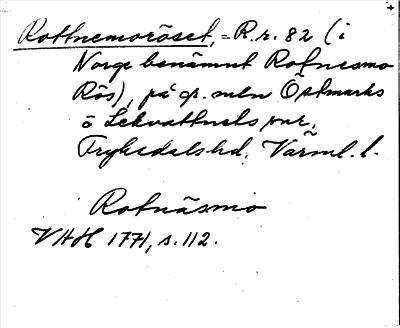 Rottnemoröset, = R.r. 82 (i
Norge benämnt Rofnesmo
Rös), på gr. mln Östmarks
o Lekvattnets snr,
Fryksdals hd, Värml. l.
Rofnäsmo
VHH 1771, s. 112.